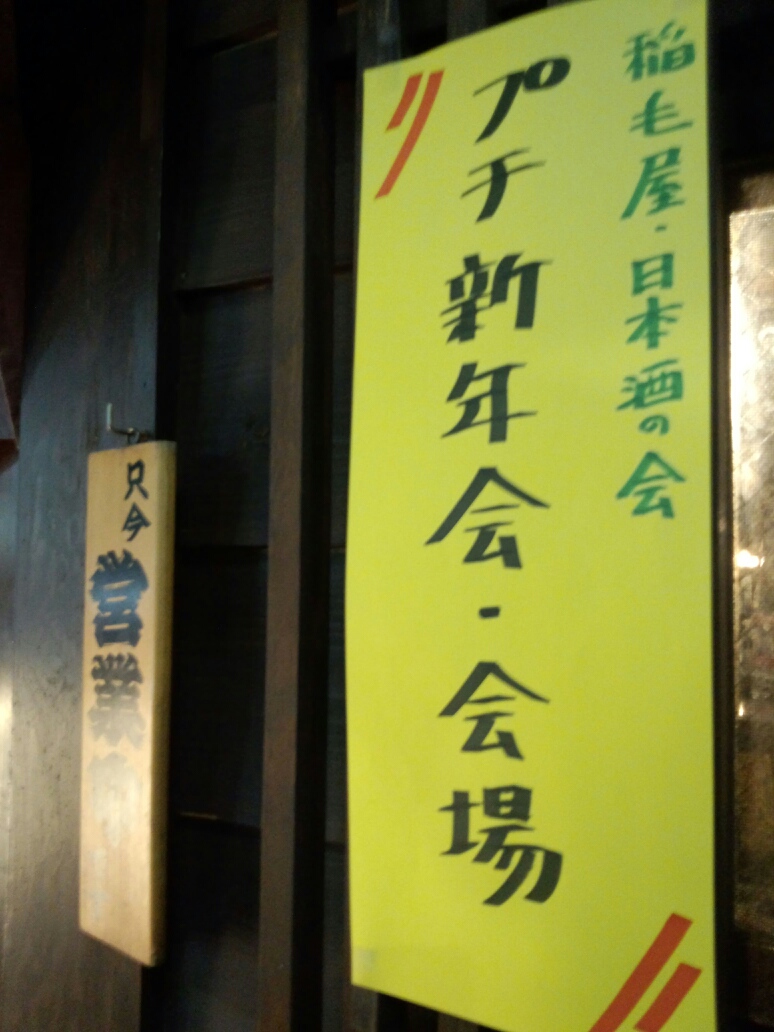 稲毛屋・日本酒の会
プチ新年会・会場
只今
営業